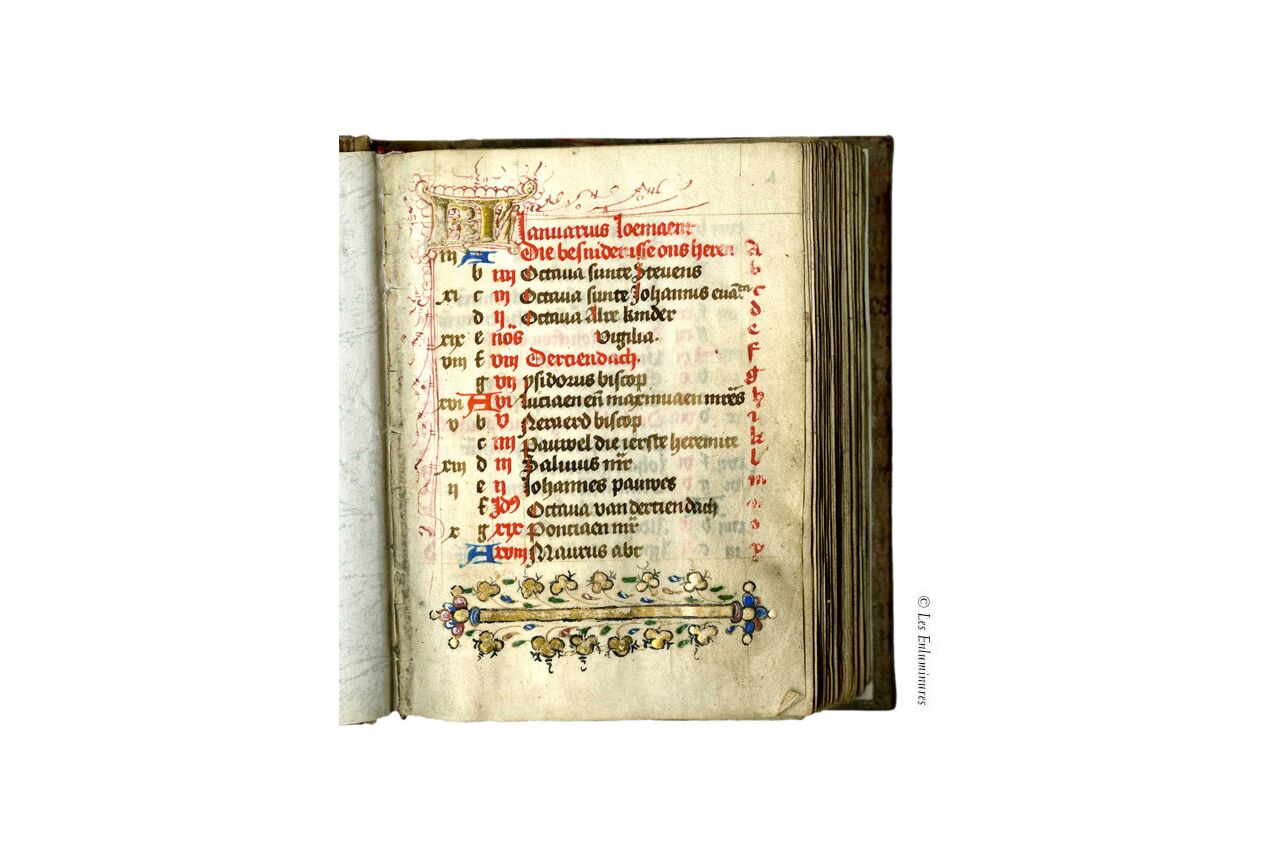 KL Ianuarius loemaent
iii A Die besniderisse ons heren a
b iiii Octava sunte Stevens b
xi c iii Octava sunte Johannus evan.ta c
d ii Octava Alre kinder d
xix e nos Vigilia. e
viii f viii Dertiendach. f
g vii ysidorus biscop g
xvi A vi Luciaen en maximiaen mres h
v b v biscop i
c iiii Pauwel die ierste heremite k
xiii d iii Salvius mr l
ii e ii Johannes pauwes m
f Idus Octava van dertiendach n
x g xix Ponciaen mr o
A xviii Maurus abt p
© Les Enluminures